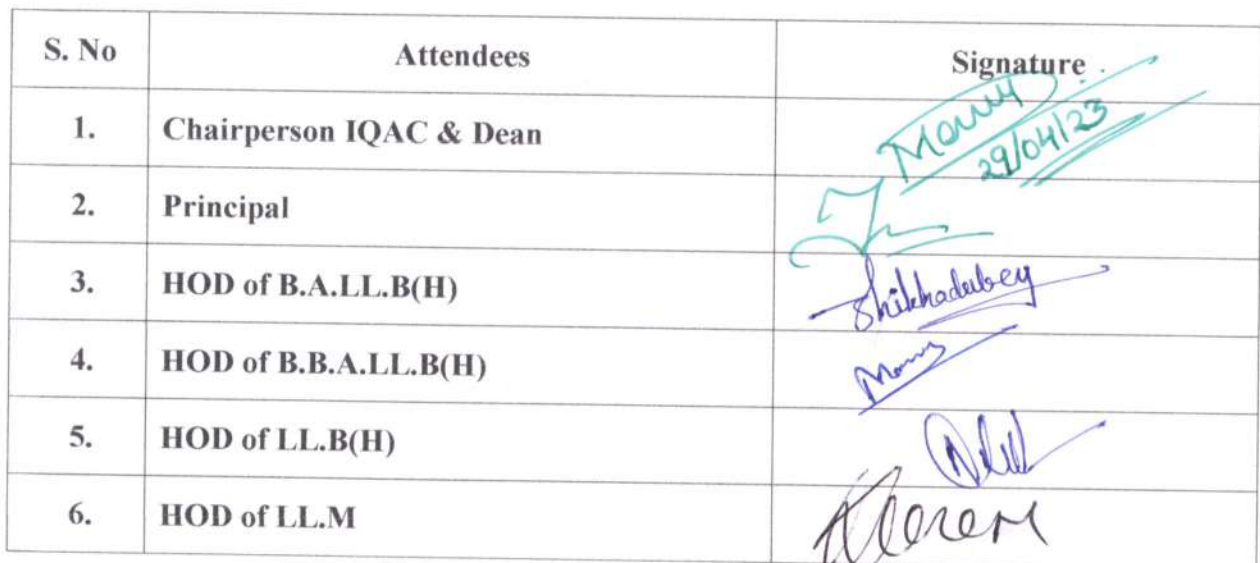 S. No Attendees Signature
1. Chairperson IQAC & Dean
29/04/23
2. Principal
3. HOD of B.A.LL.B(H) Shikhadubey
4. HOD of B.B.A.LL.B(H)
5. HOD of LL.B(H)
6. HOD of LL.M